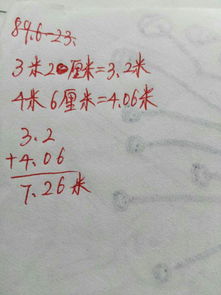 89.6-23.
3米20厘米=3.2米
4米6厘米=4.06米
3.2
+4.06
7.26米